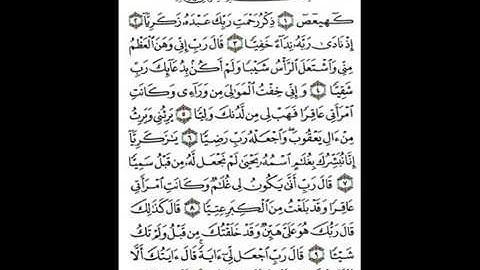 كٓهيعٓصٓ ١ ذِكْرُ رَحْمَتِ رَبِّكَ عَبْدَهُۥ زَكَرِيَّآ ٢
إِذْ نَادَىٰ رَبَّهُۥ نِدَآءً خَفِيًّا ٣ قَالَ رَبِّ إِنِّى وَهَنَ ٱلْعَظْمُ
مِنِّى وَٱشْتَعَلَ ٱلرَّأْسُ شَيْبًا وَلَمْ أَكُنۢ بِدُعَآئِكَ رَبِّ
شَقِيًّا ٤ وَإِنِّى خِفْتُ ٱلْمَوَٰلِىَ مِن وَرَآءِى وَكَانَتِ
ٱمْرَأَتِى عَاقِرًا فَهَبْ لِى مِن لَّدُنكَ وَلِيًّا ٥ يَرِثُنِى وَيَرِثُ
مِنْ ءَالِ يَعْقُوبَ ۖ وَٱجْعَلْهُ رَبِّ رَضِيًّا ٦ يَٰزَكَرِيَّآ
إِنَّا نُبَشِّرُكَ بِغُلَٰمٍ ٱسْمُهُۥ يَحْيَىٰ لَمْ نَجْعَل لَّهُۥ مِن قَبْلُ سَمِيًّا
٧ قَالَ رَبِّ أَنَّىٰ يَكُونُ لِى غُلَٰمٌ وَكَانَتِ ٱمْرَأَتِى
عَاقِرًا وَقَدْ بَلَغْتُ مِنَ ٱلْكِبَرِ عِتِيًّا ٨ قَالَ كَذَٰلِكَ
قَالَ رَبُّكَ هُوَ عَلَىَّ هَيِّنٌ وَقَدْ خَلَقْتُكَ مِن قَبْلُ وَلَمْ تَكُ
شَيْـًٔا ٩ قَالَ رَبِّ ٱجْعَل لِّىٓ ءَايَةً ۚ قَالَ ءَايَتُكَ أَلَّا